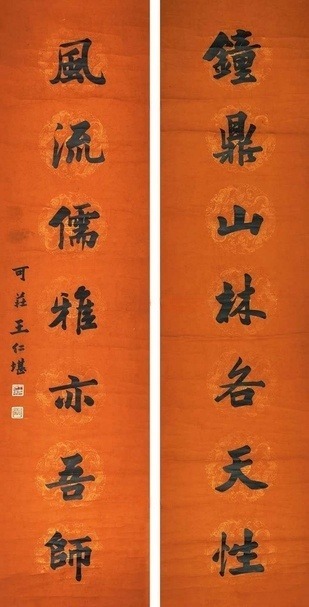 鐘鼎山林各天性
風流儒雅亦吾師
可莊王仁堪